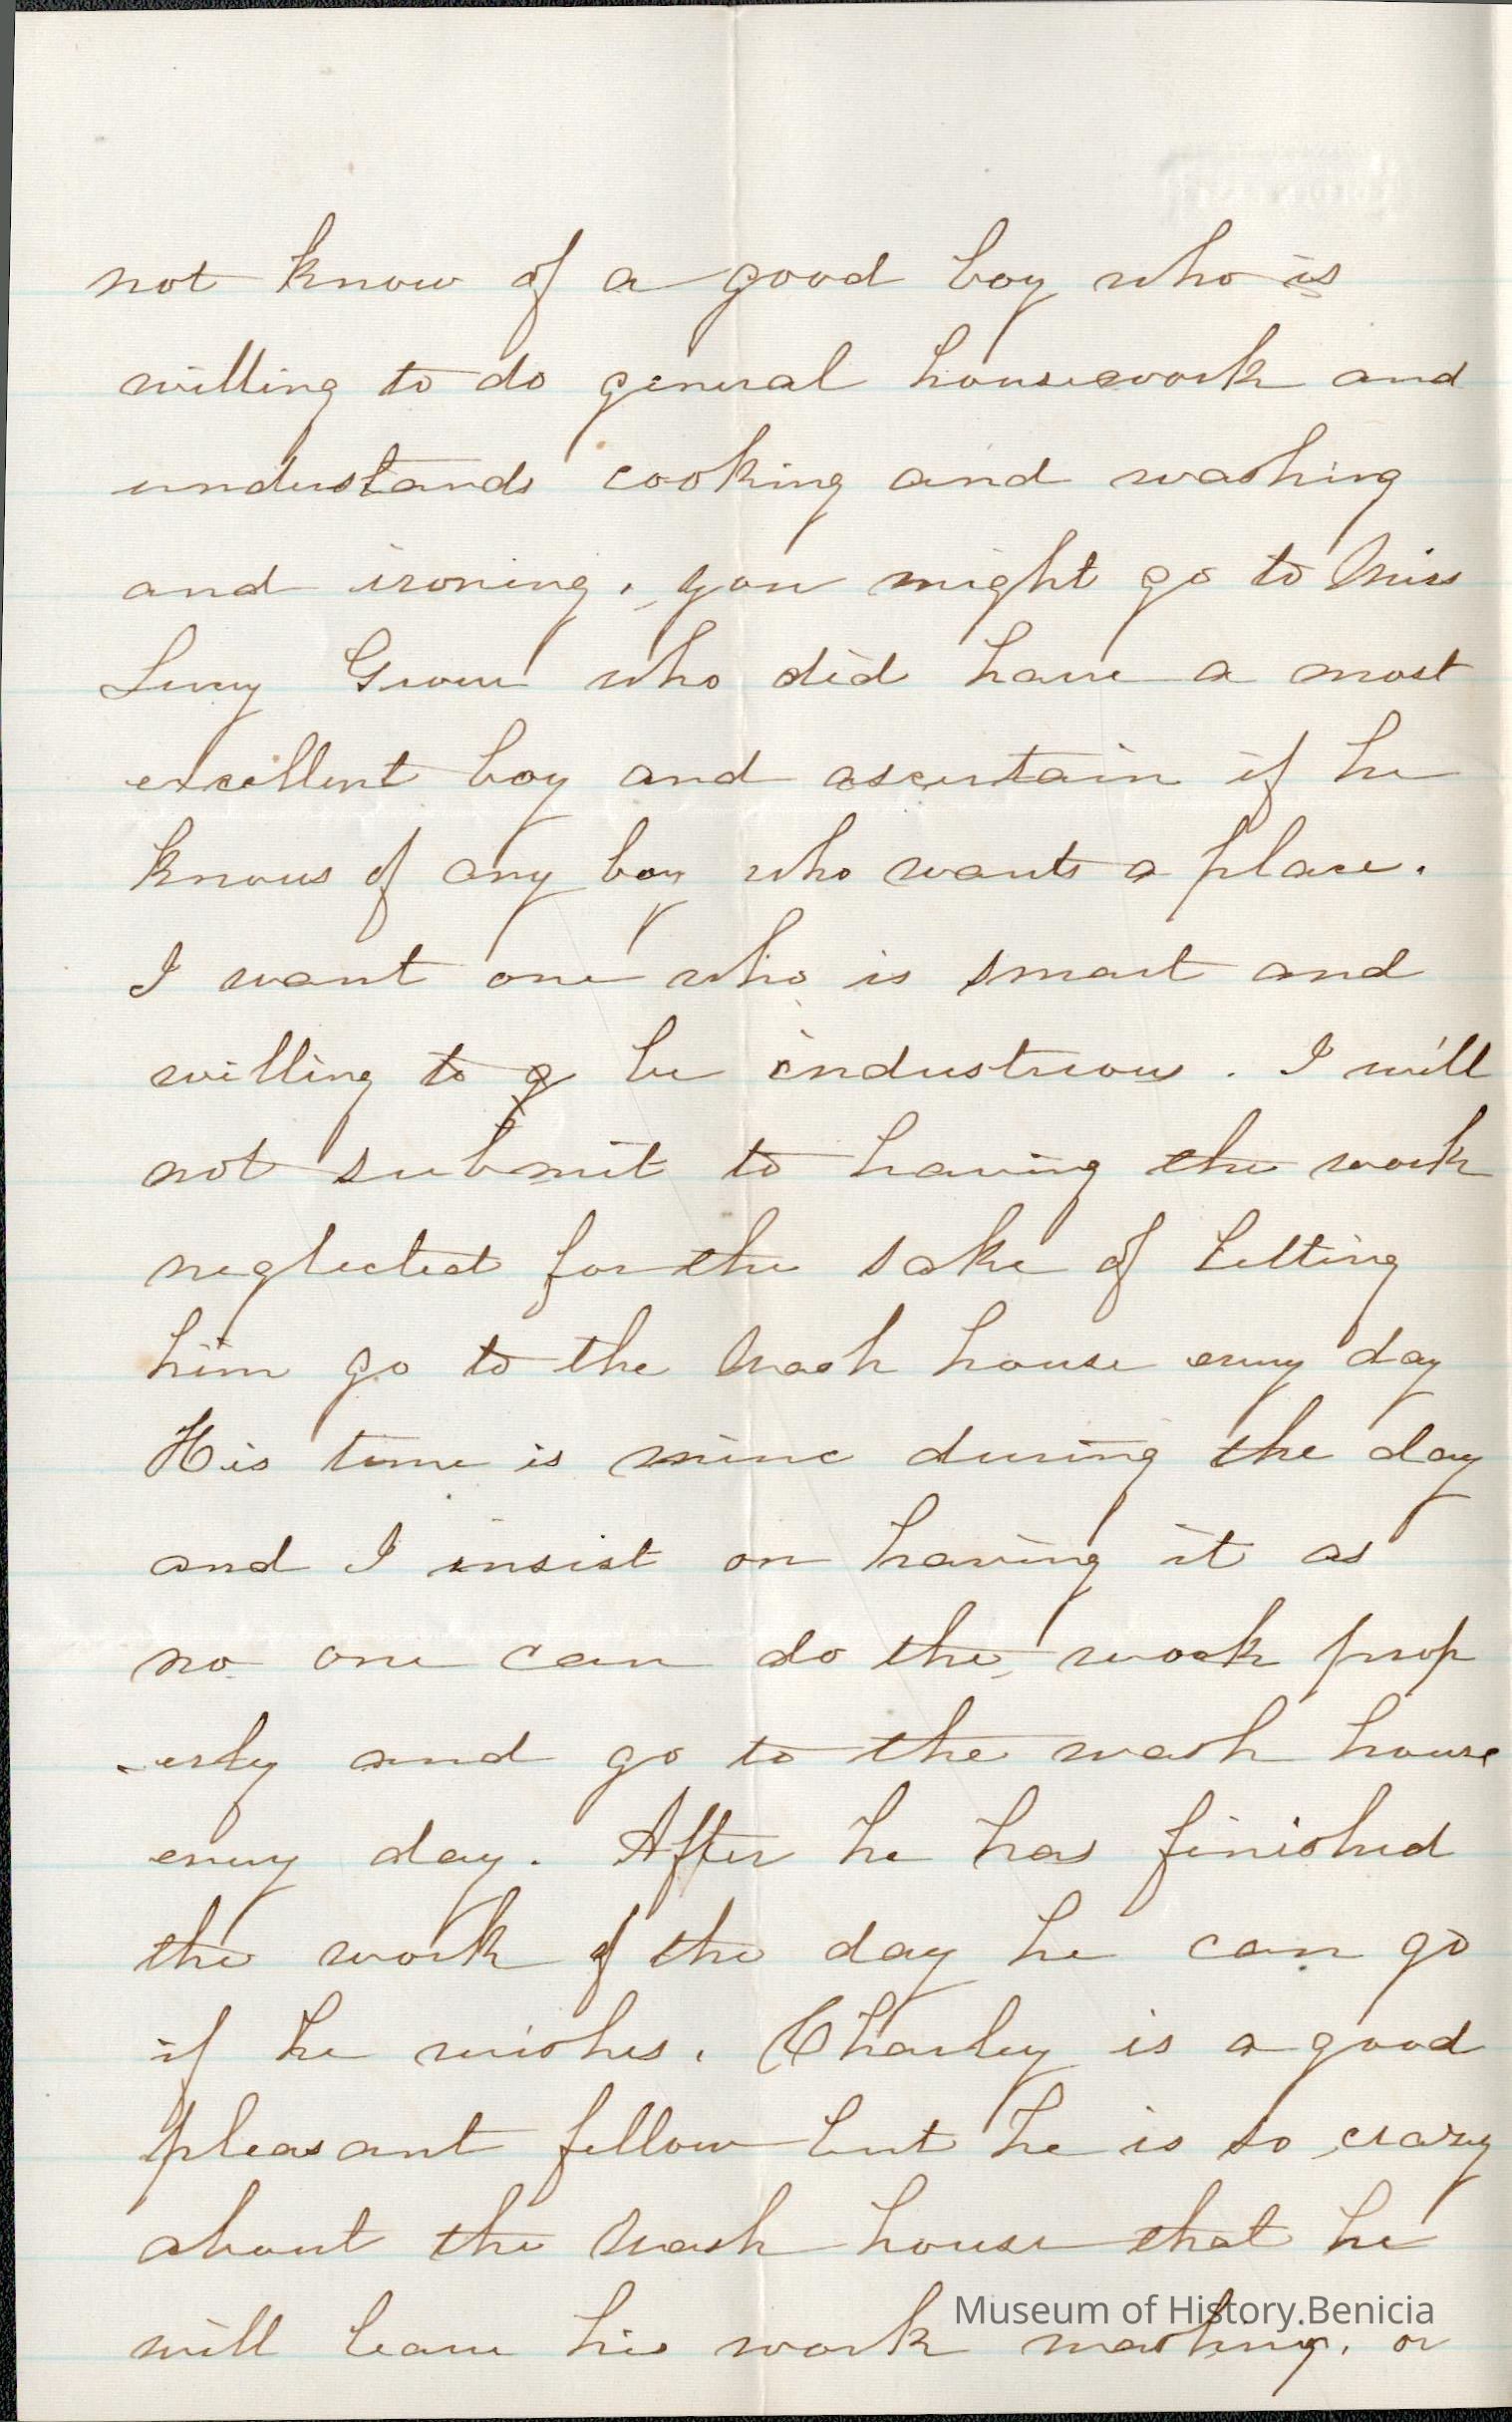 not know of a good boy who is
willing to do general housework and
understands cooking and washing
and ironing, you might go to Miss
who did have a most
excellent boy and ascertain if he
knows of any boy who wants a place.
I want one who is smart and
willing to g be industrious. I will
not submit to having the work
neglected for the sake of letting
him go to the wash house every day
His time is mine during the day
and I insist on having it as
no one can do the work prop
-erly and go to the wash house
every day. After he has finished
the work of the day he can go
if he wishes. Charley is a good
pleasant fellow but he is so crazy
about the wash house that he
will leave his work washing, or
Museum of History.Benicia